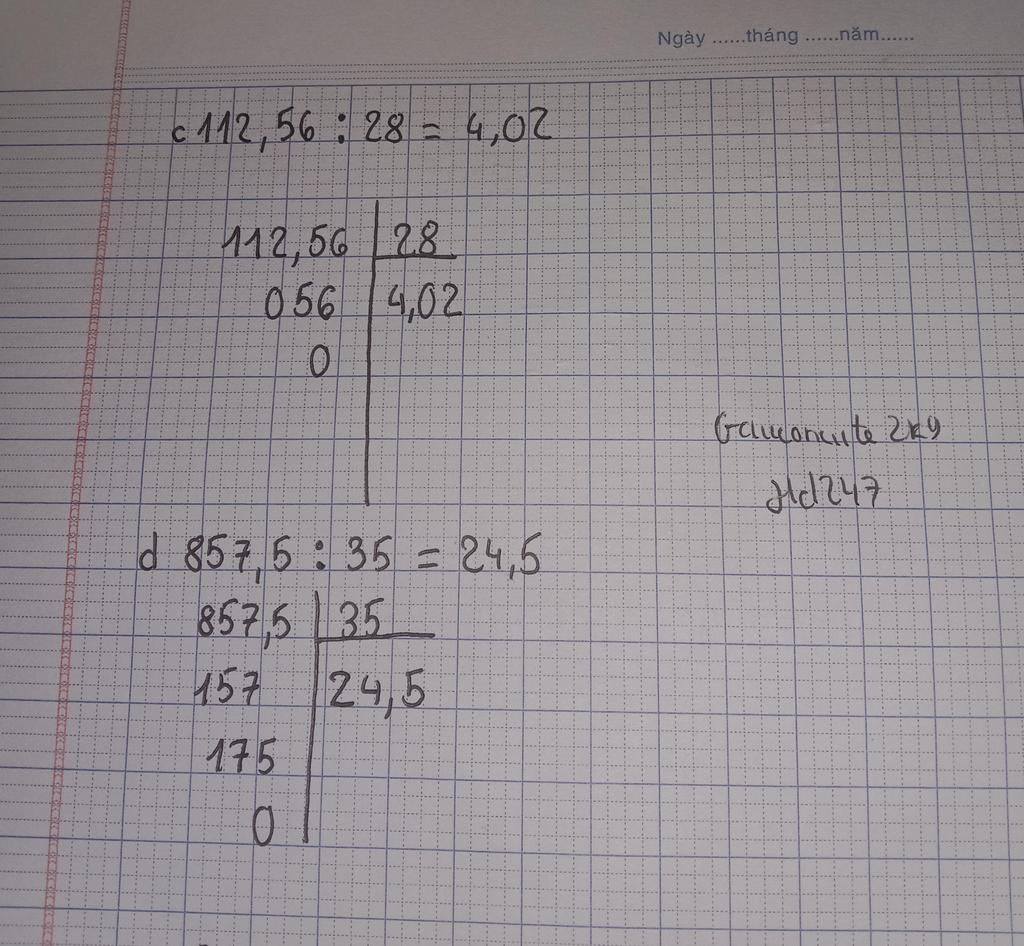 Ngày ......tháng ......năm......
c 112,56 : 28 = 4,02
112,56 28
056 4,02
0
2k9
Hd247
d 857,5 : 35 = 24,5
857,5 35
157 24,5
175
0